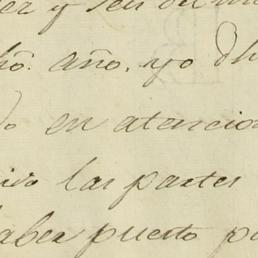 y seis
ho. año, yo dh
en atencion
las partes
haber puesto p